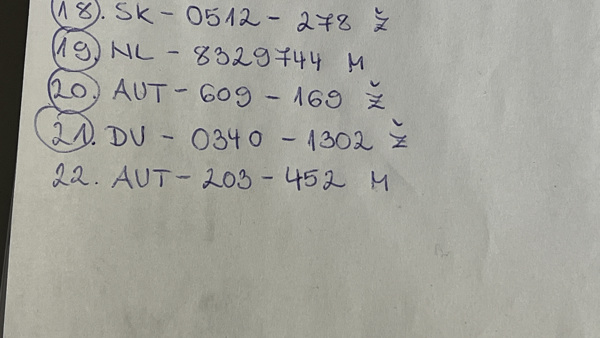 18. SK - 0512 - 278 Ž
19. NL - 8329744 M
20. AUT - 609 - 169 Ž
21. DV - 0340 - 1302 Ž
22. AUT - 203 - 452 M